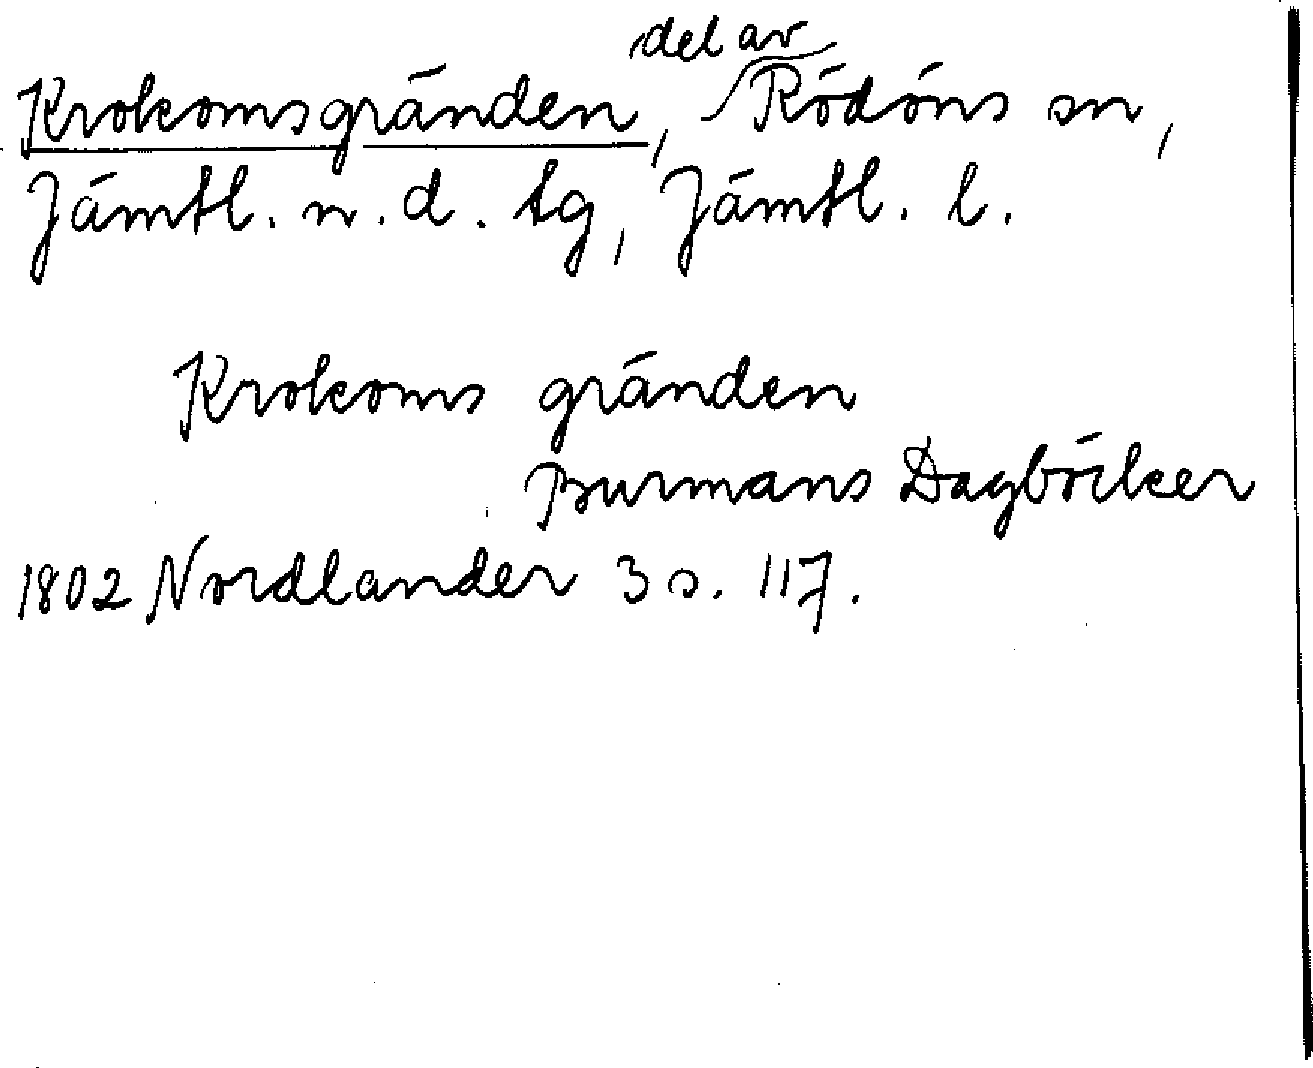 Krokomsgränden, del av Rödöns sn,
Jämtl. n. d. tg, Jämtl. l.
Krokoms gränden
Burmans Dagböcker
1802 Nordlander 3 s. 117.